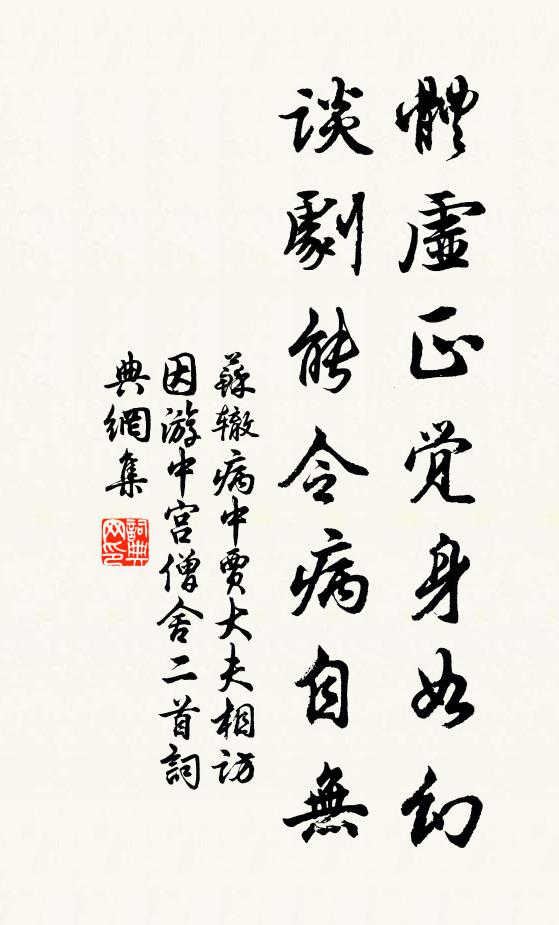 體虛正覺身如幻
談劇能令病自無
蘇轍病中賈大夫相訪
因游中宮僧舍二首詞
典網集
詞典
网印